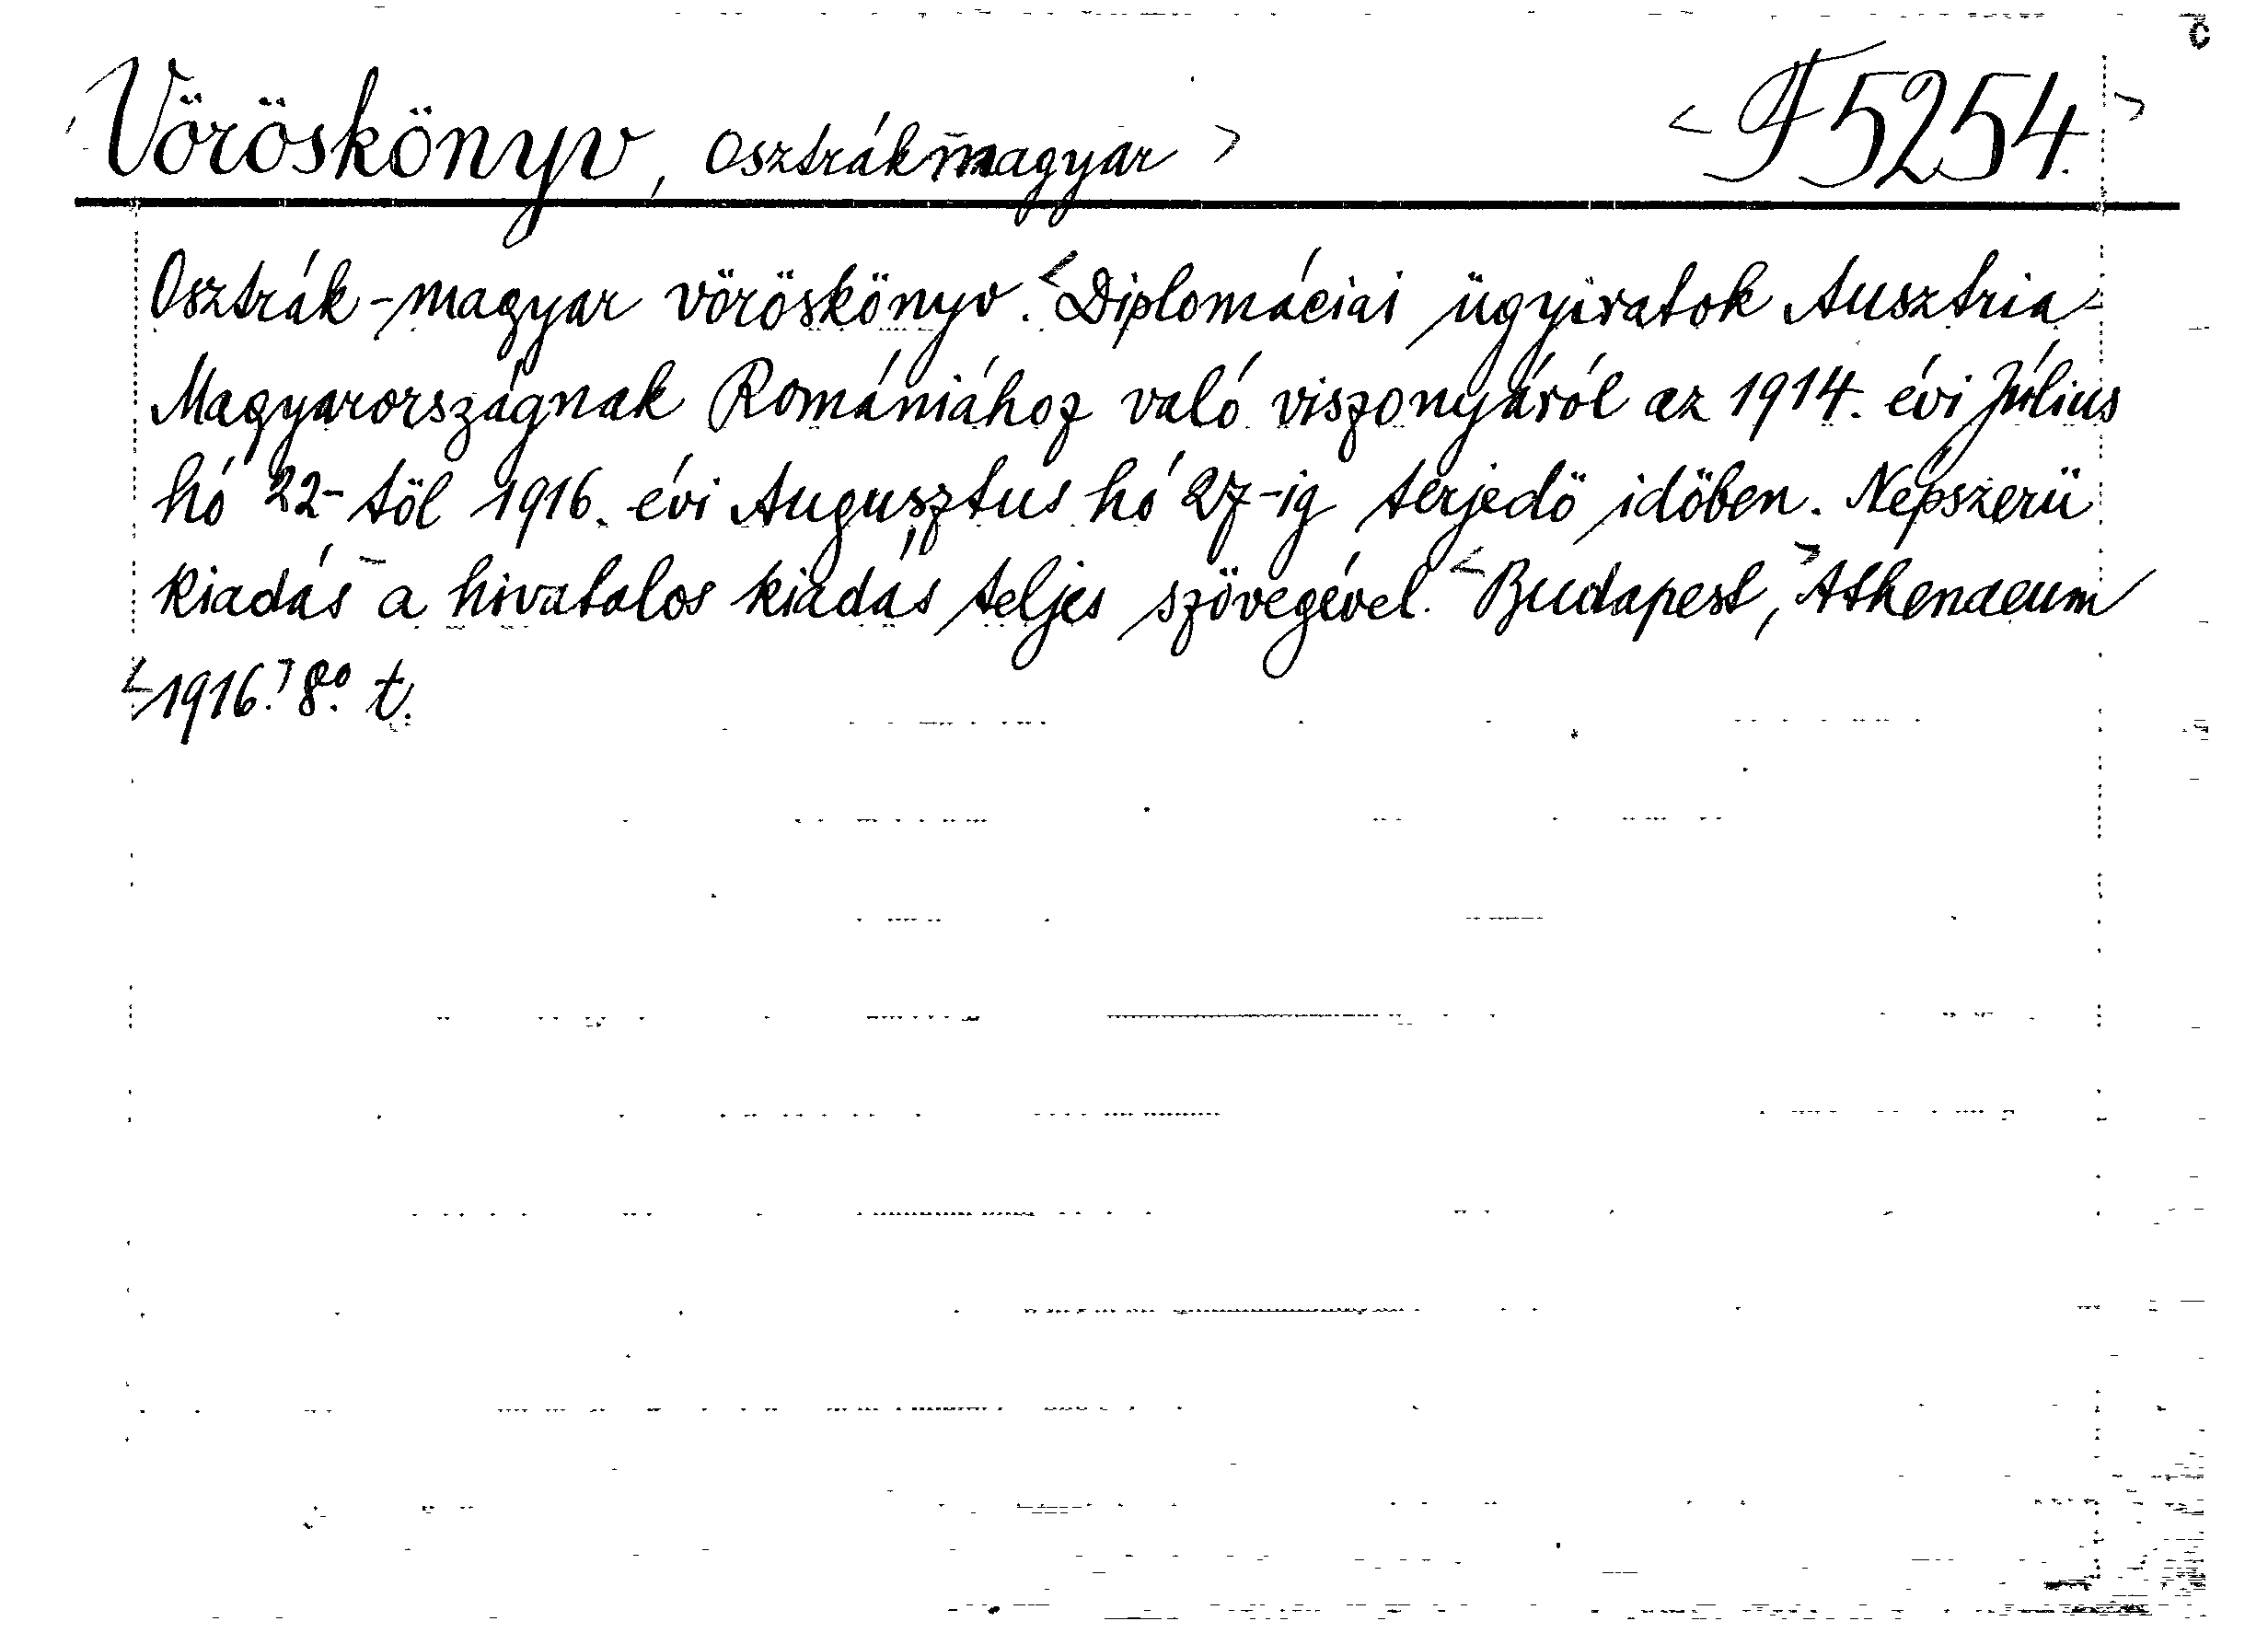 Vöröskönyv, Osztrákmagyar > <F 5254.>
Osztrák-magyar vöröskönyv. <Diplomáciai ügyiratok Ausztria-
Magyarországnak Romániához való viszonyáról az 1914. évi Július
hó 22-töl 1916. évi Augusztus hó 27-ig terjedö idöben. Népszerü
kiadás a hivatalos kiadás teljes szövegével. <Budapest,> Athenaeum
<1916.> 8.° t.